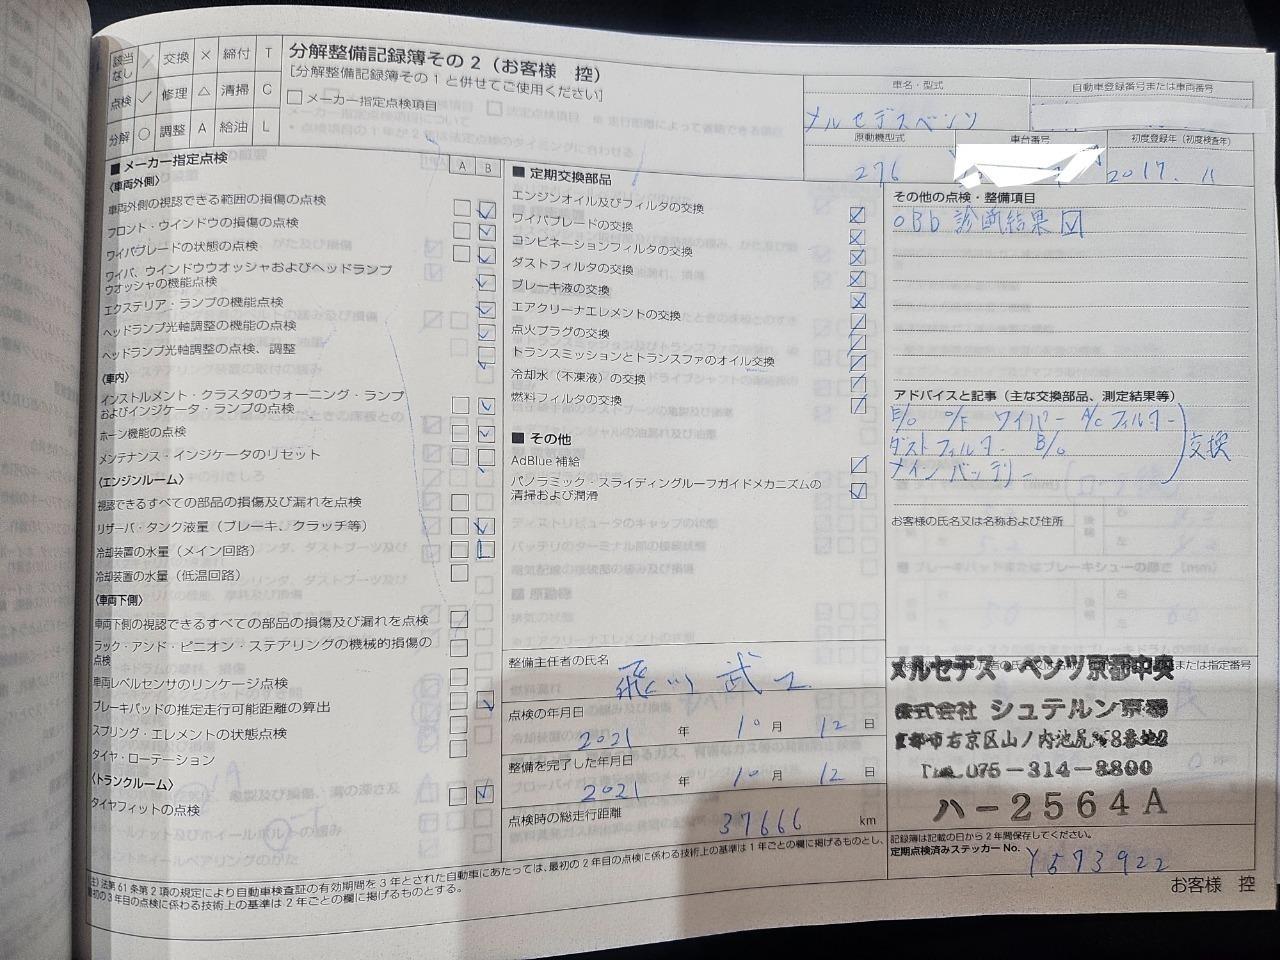 該当なし / 交換 × 締付 T
点検 ✓ 修理 △ 清掃 C
分解 ○ 調整 A 給油 L
分解整備記録簿その2（お客様 控）
[分解整備記録簿その1と併せてご使用ください]
□メーカー指定点検項目
車名・型式
メルセデスベンツ
自動車登録番号または車両番号
原動機型式
276
車台番号
初度登録年（初度検査年）
2017. 11
■ メーカー指定点検
A B
〈車両外側〉
車両外側の視認できる範囲の損傷の点検
フロント・ウインドウの損傷の点検
ワイパブレードの状態の点検
ワイパ、ウインドウウオッシャおよびヘッドランプ
ウオッシャの機能点検
エクステリア・ランプの機能点検
ヘッドランプ光軸調整の機能の点検
ヘッドランプ光軸調整の点検、調整
〈車内〉
インストルメント・クラスタのウォーニング・ランプ
およびインジケータ・ランプの点検
ホーン機能の点検
メンテナンス・インジケータのリセット
〈エンジンルーム〉
視認できるすべての部品の損傷及び漏れを点検
リザーバ・タンク液量（ブレーキ、クラッチ等）
冷却装置の水量（メイン回路）
冷却装置の水量（低温回路）
〈車両下側〉
車両下側の視認できるすべての部品の損傷及び漏れを点検
ラック・アンド・ピニオン・ステアリングの機械的損傷の
点検
車両レベルセンサのリンケージ点検
ブレーキパッドの推定走行可能距離の算出
スプリング・エレメントの状態点検
タイヤ・ローテーション
〈トランクルーム〉
タイヤフィットの点検
■ 定期交換部品
エンジンオイル及びフィルタの交換
ワイパブレードの交換
コンビネーションフィルタの交換
ダストフィルタの交換
ブレーキ液の交換
エアクリーナエレメントの交換
点火プラグの交換
トランスミッションとトランスファのオイル交換
冷却水（不凍液）の交換
燃料フィルタの交換
■ その他
AdBlue 補給
パノラミック・スライディングルーフガイドメカニズムの
清掃および潤滑
整備主任者の氏名
点検の年月日
2021 年 10 月 12 日
整備を完了した年月日
2021 年 10 月 12 日
点検時の総走行距離
37666 km
その他の点検・整備項目
OBD 診断結果 ☑
アドバイスと記事（主な交換部品、測定結果等）
E/O O/F ワイパー A/C フィルター
ダストフィルター B/O
メインバッテリー
交換
お客様の氏名又は名称および住所
メルセデス・ベンツ京都中央
株式会社 シュテルン京都
京都市右京区山ノ内池尻町8番地2
TEL 075-314-8800
ハ-2564A
記録簿は記載の日から2年間保存してください。
定期点検済みステッカー No. Y573922
お客様 控
注）法第61条第2項の規定により自動車検査証の有効期間を3年とされた自動車にあたっては、最初の2年目の点検に係わる技術上の基準は1年ごとの欄に掲げるものとし、
最初の3年目の点検に係わる技術上の基準は2年ごとの欄に掲げるものとする。